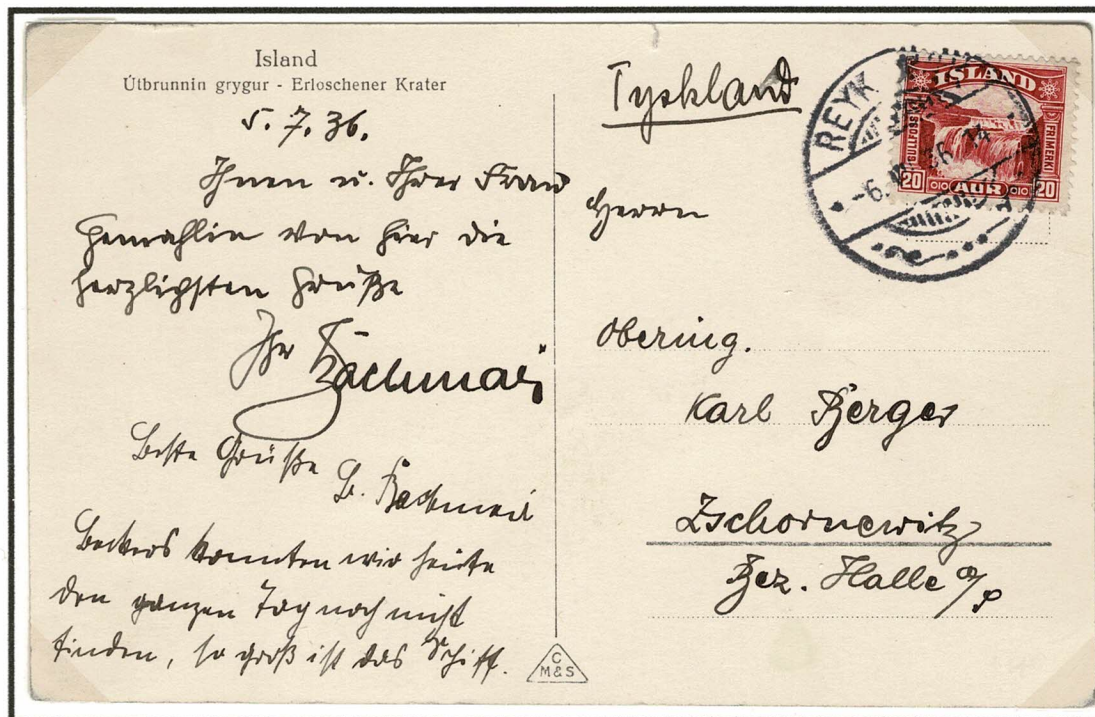 Island
Útbrunnin grygur - Erloschener Krater
5.7.36.
Ihnen u. Ihrer Frau
Gemahlin von hier die
herzlichsten Grüße
Ihr
Beste Grüße
B.
Beckers konnten wir heute
den ganzen Tag noch nicht
finden, so groß ist das Schiff.
C
M&S
Tyskland
REYK
-6. 36. 14
ISLAND
GULLFOSS
FRIMERKI
20 AUR 20
Herrn
Obering.
Karl Berger
Zschornewitz
Bez. Halle a/S